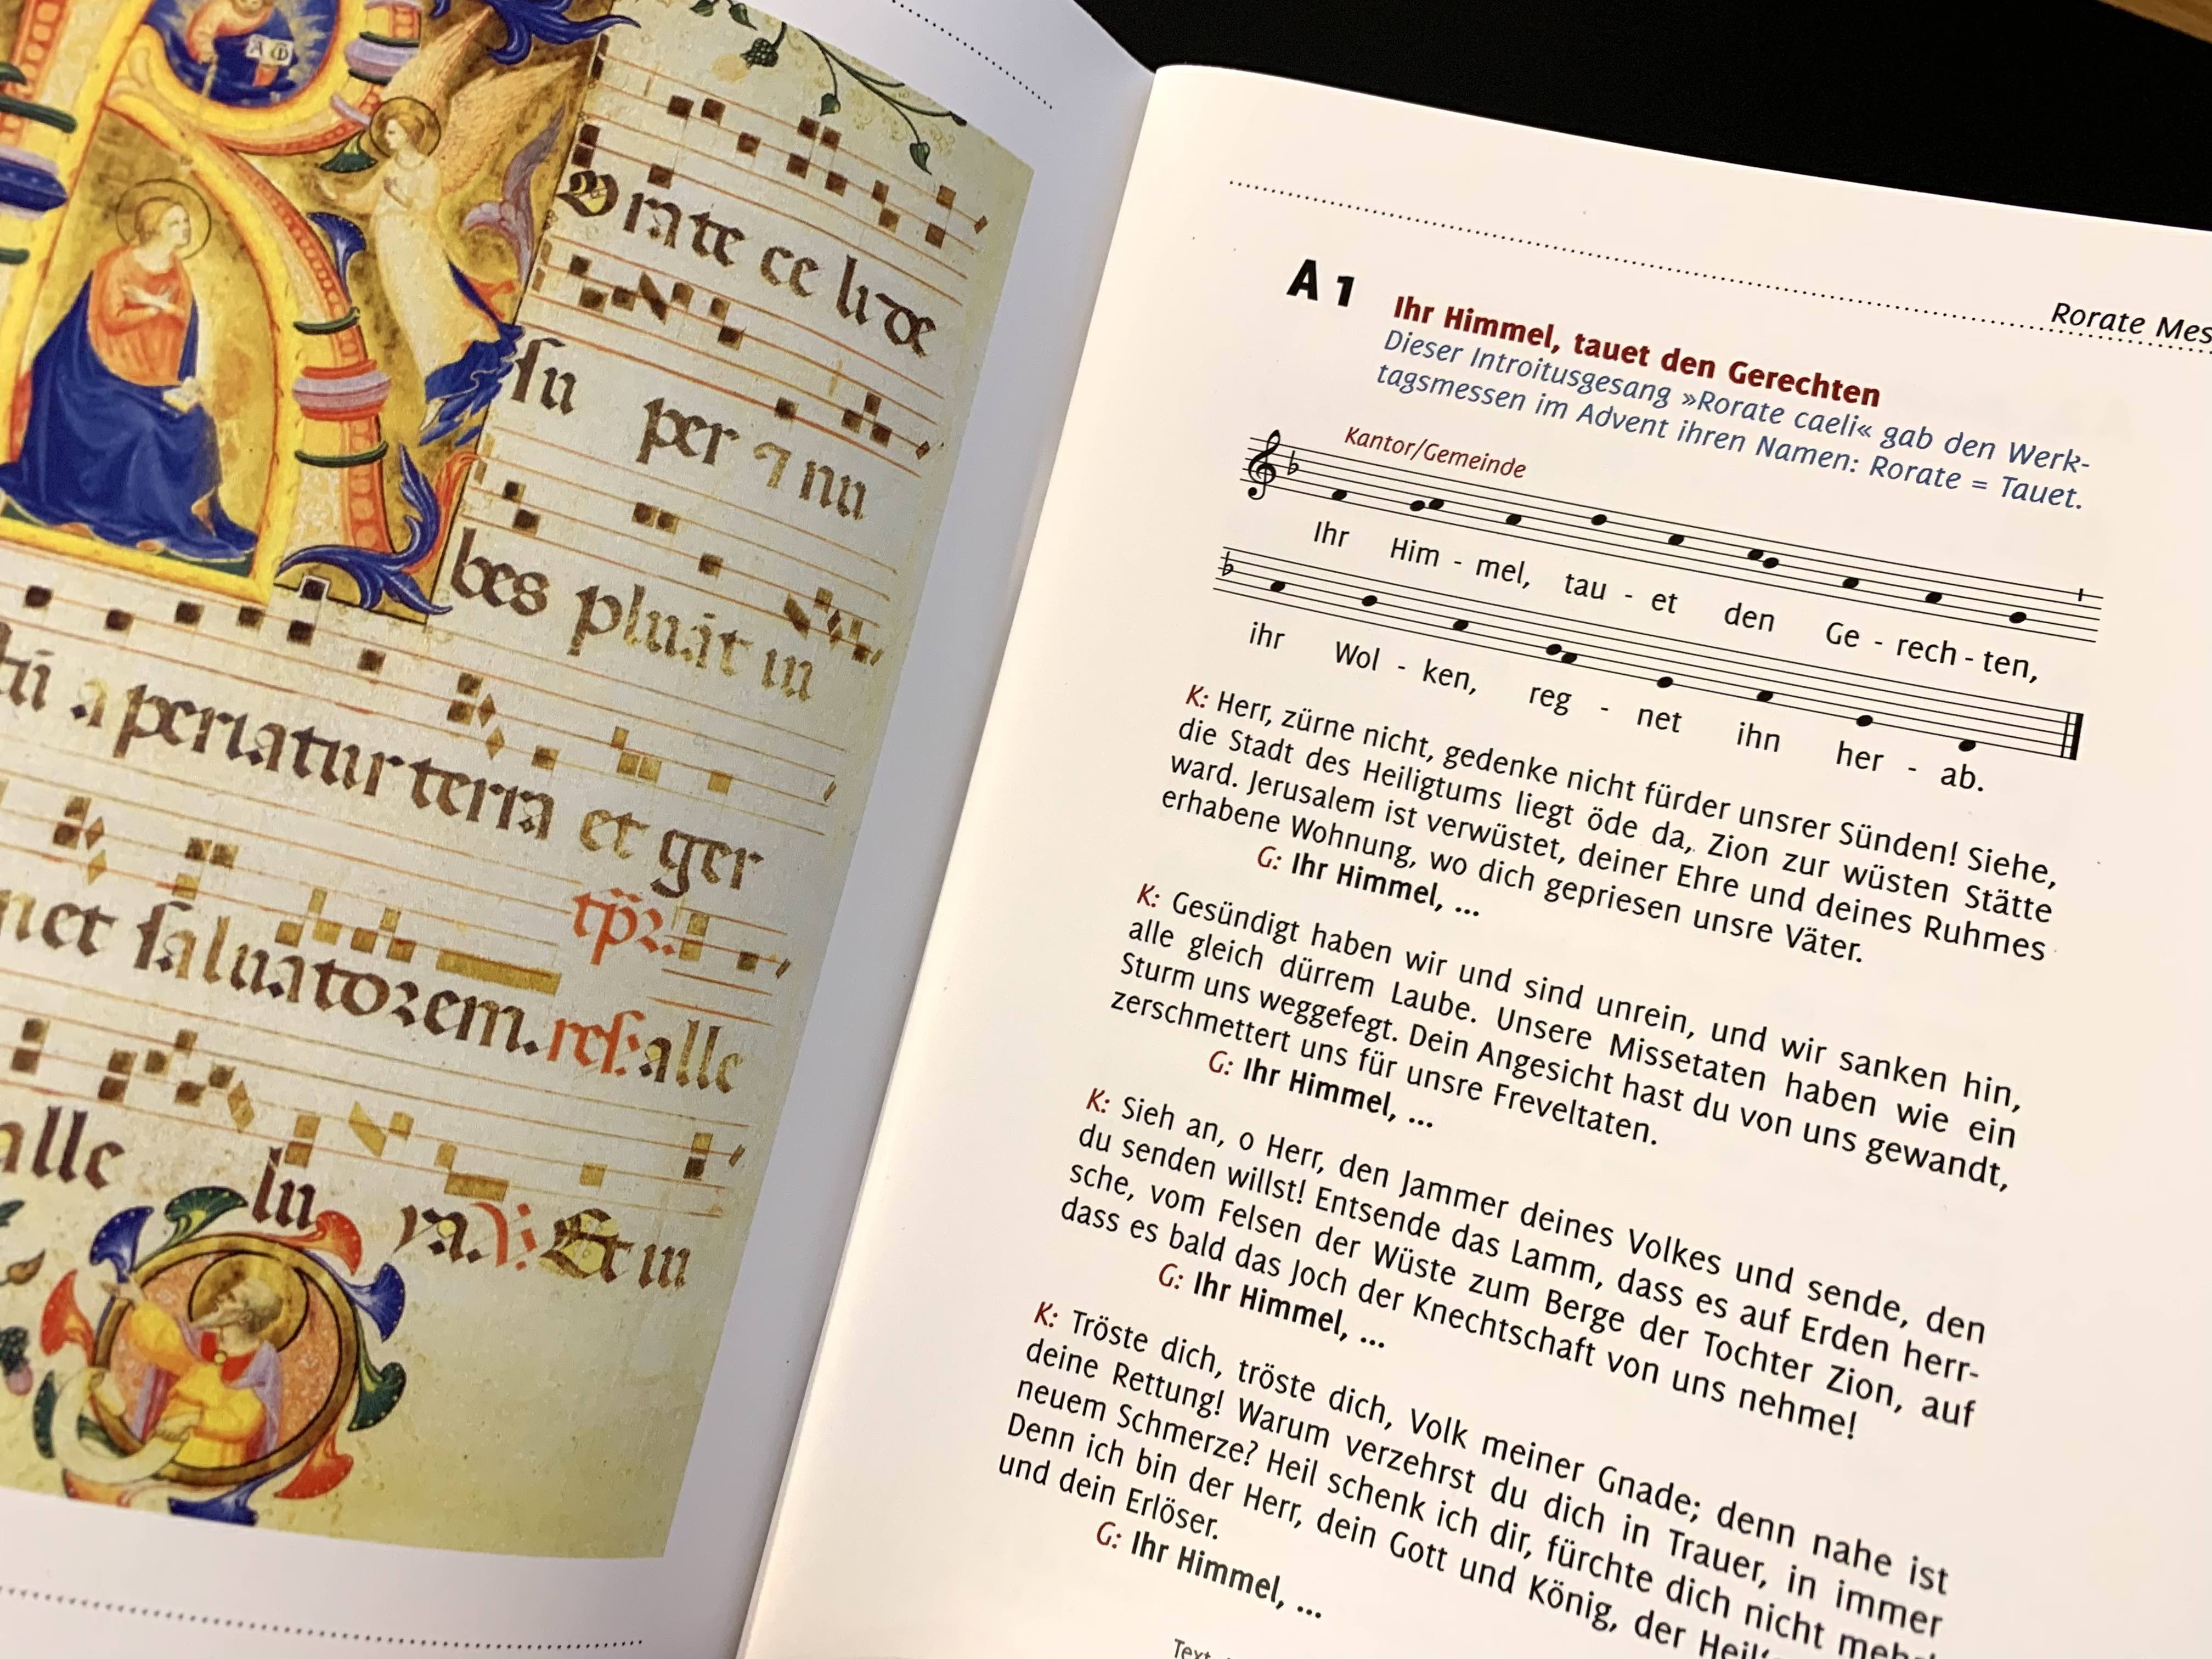 A ω
orate celi de
su per ⁊ nu
bes pluat in
sti aperiatur terra et ger
tp̄r.
net saluatorem. res. alle
alle lu ya. V: Et in
Rorate Mes
A 1
Ihr Himmel, tauet den Gerechten
Dieser Introitusgesang »Rorate caeli« gab den Werk-
tagsmessen im Advent ihren Namen: Rorate = Tauet.
Kantor/Gemeinde
Ihr Him - mel, tau - et den Ge - rech - ten,
ihr Wol - ken, reg - net ihn her - ab.
K: Herr, zürne nicht, gedenke nicht fürder unsrer Sünden! Siehe,
die Stadt des Heiligtums liegt öde da, Zion zur wüsten Stätte
ward. Jerusalem ist verwüstet, deiner Ehre und deines Ruhmes
erhabene Wohnung, wo dich gepriesen unsre Väter.
G: Ihr Himmel, ...
K: Gesündigt haben wir und sind unrein, und wir sanken hin,
alle gleich dürrem Laube. Unsere Missetaten haben wie ein
Sturm uns weggefegt. Dein Angesicht hast du von uns gewandt,
zerschmettert uns für unsre Freveltaten.
G: Ihr Himmel, ...
K: Sieh an, o Herr, den Jammer deines Volkes und sende, den
du senden willst! Entsende das Lamm, dass es auf Erden herr-
sche, vom Felsen der Wüste zum Berge der Tochter Zion, auf
dass es bald das Joch der Knechtschaft von uns nehme!
G: Ihr Himmel, ...
K: Tröste dich, tröste dich, Volk meiner Gnade; denn nahe ist
deine Rettung! Warum verzehrst du dich in Trauer, in immer
neuem Schmerze? Heil schenk ich dir, fürchte dich nicht mehr
Denn ich bin der Herr, dein Gott und König, der Heil
und dein Erlöser.
G: Ihr Himmel, ...
Text